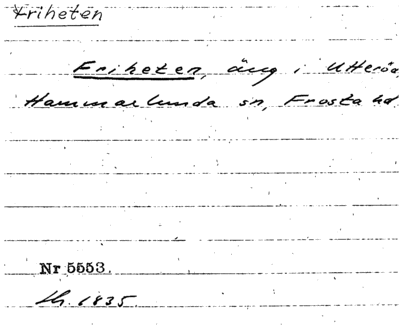 Friheten
Friheten, äng i Utteröd,
Hammarlunda sn, Frosta hd
Nr 5553.
Lh. 1835.